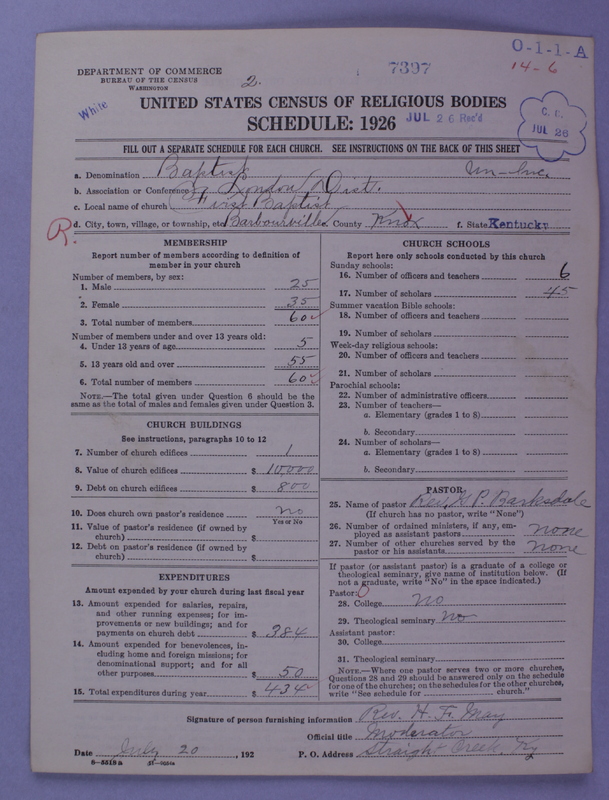 O-1-1-A
14-6
7397
DEPARTMENT OF COMMERCE
BUREAU OF THE CENSUS
WASHINGTON
2.
White
UNITED STATES CENSUS OF RELIGIOUS BODIES
SCHEDULE: 1926
JUL 26 Rec'd
JUL 26
FILL OUT A SEPARATE SCHEDULE FOR EACH CHURCH. SEE INSTRUCTIONS ON THE BACK OF THIS SHEET
a. Denomination Baptist Un-Inc.
b. Association or Conference London Dist.
c. Local name of church First Baptist
R. d. City, town, village, or township, etc Barbourville e. County Knox f. State Kentucky
MEMBERSHIP
Report number of members according to definition of
member in your church
Number of members, by sex:
1. Male 25
2. Female 35
3. Total number of members 60
Number of members under and over 13 years old:
4. Under 13 years of age 5
5. 13 years old and over 55
6. Total number of members 60
NOTE.—The total given under Question 6 should be the
same as the total of males and females given under Question 3.
CHURCH BUILDINGS
See instructions, paragraphs 10 to 12
7. Number of church edifices 1
8. Value of church edifices $ 10,000
9. Debt on church edifices $ 800
10. Does church own pastor's residence no
Yes or No
11. Value of pastor's residence (if owned by
church) $
12. Debt on pastor's residence (if owned by
church) $
EXPENDITURES
Amount expended by your church during last fiscal year
13. Amount expended for salaries, repairs,
and other running expenses; for im-
provements or new buildings; and for
payments on church debt $ 384
14. Amount expended for benevolences, in-
cluding home and foreign missions; for
denominational support; and for all
other purposes $ 50
15. Total expenditures during year $ 434
CHURCH SCHOOLS
Report here only schools conducted by this church
Sunday schools:
16. Number of officers and teachers 6
17. Number of scholars 45
Summer vacation Bible schools:
18. Number of officers and teachers
19. Number of scholars
Week-day religious schools:
20. Number of officers and teachers
21. Number of scholars
Parochial schools:
22. Number of administrative officers
23. Number of teachers—
a. Elementary (grades 1 to 8)
b. Secondary
24. Number of scholars—
a. Elementary (grades 1 to 8)
b. Secondary
PASTOR
25. Name of pastor Rev. G. P. Barksdale
(If church has no pastor, write "None")
26. Number of ordained ministers, if any, em-
ployed as assistant pastors none
27. Number of other churches served by the
pastor or his assistants none
If pastor (or assistant pastor) is a graduate of a college or
theological seminary, give name of institution below. (If
not a graduate, write "No" in the space indicated.)
Pastor: 0
28. College no
29. Theological seminary no
Assistant pastor:
30. College
31. Theological seminary
NOTE.—Where one pastor serves two or more churches,
Questions 28 and 29 should be answered only on the schedule
for one of the churches; on the schedules for the other churches,
write "See schedule for church."
Signature of person furnishing information Rev. H. F. May
Official title Moderator
Date July 20, 192 P. O. Address Straight Creek, Ky
8-5518a